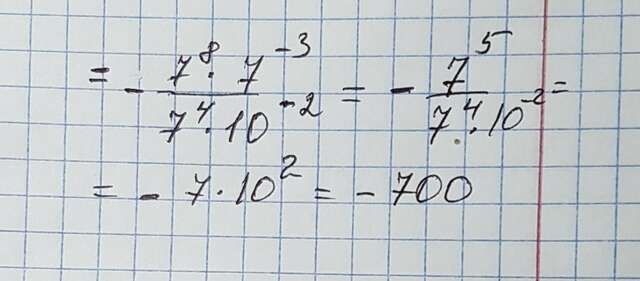 = - 7⁸ · 7⁻³ / 7⁴ · 10⁻² = - 7⁵ / 7⁴ · 10⁻² =
= - 7 · 10² = - 700